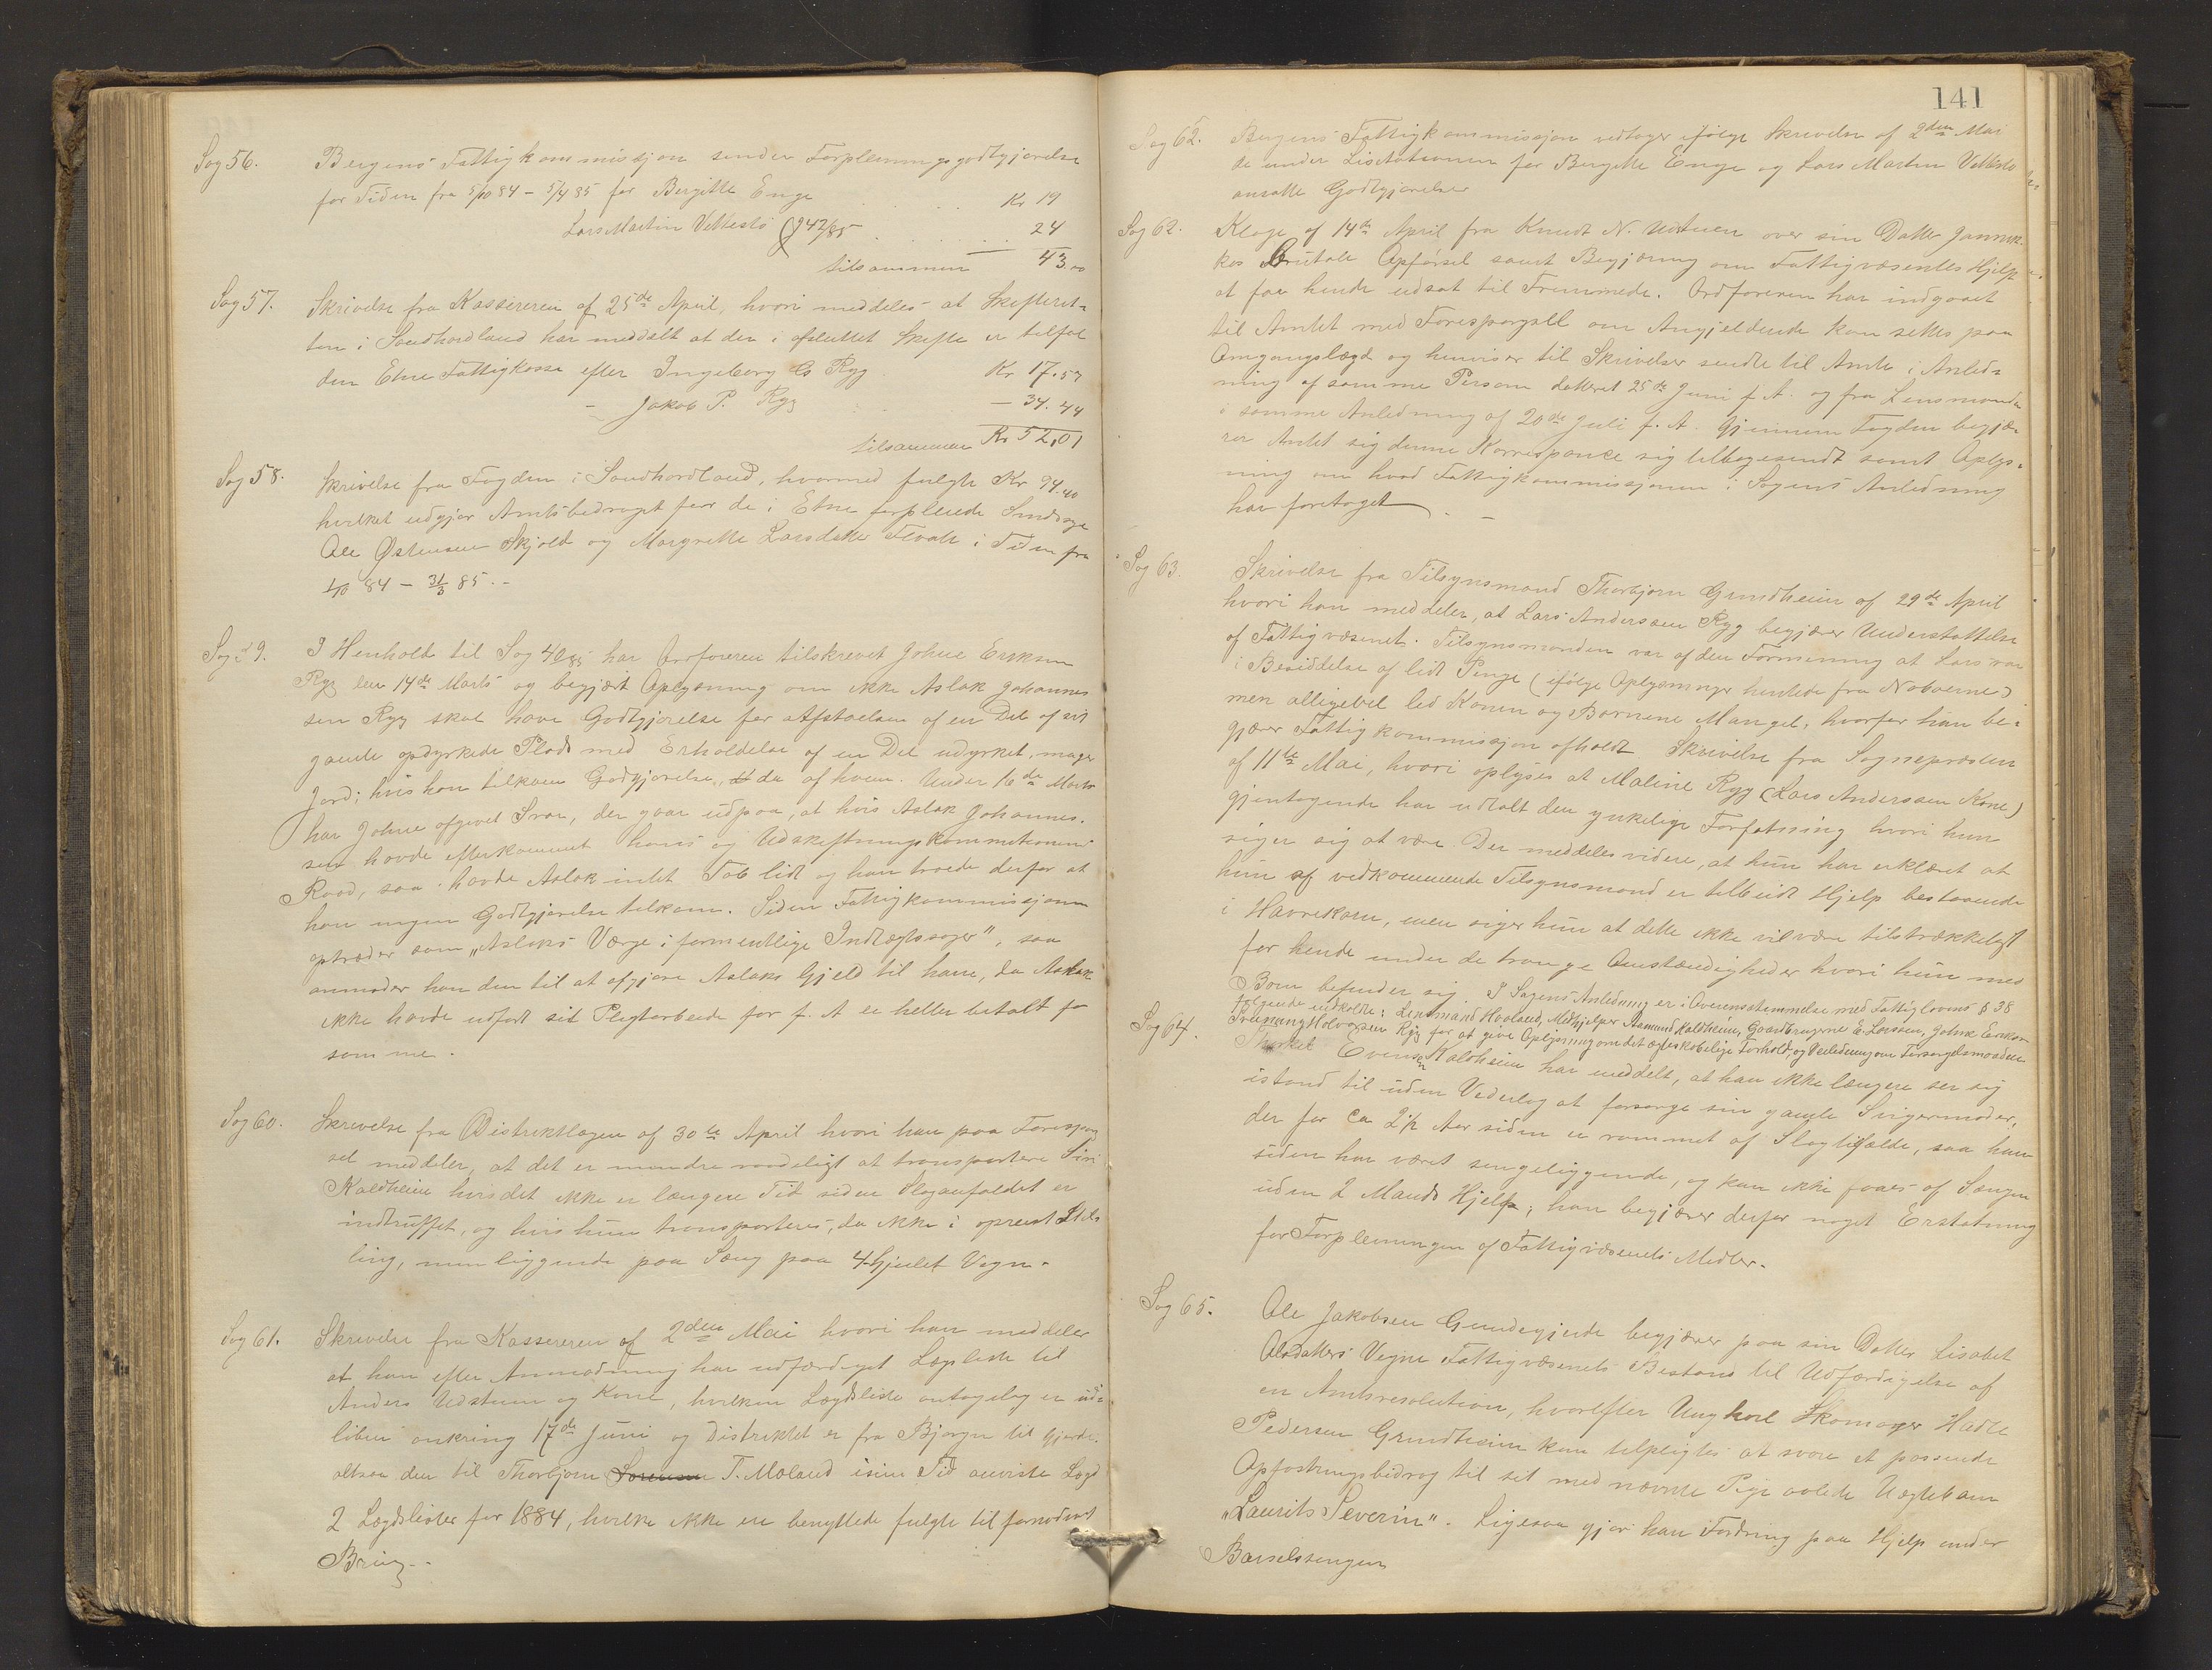 Sag 56. Bergens Fattigkommissjon sender Forpleiningsgodtgjørelse
for Tiden fra 5/10 84 - 5/4 85 for Bergitte Enge . . . Kr 19
Lars Martin Vettestø (J 42/85 . . . 24
tilsammen 43.00
Sag 57. Skrivelse fra Kassereren af 25de April, hvori meddeles at Skifteret-
ten i Søndhordland har meddelt at der i afsluttet Skifte er tilfal
den Etne Fattigkasse efter Ingeborg Rygg Kr 17.57
- Jakob P. Rygg - 34.44
tilsammen Kr 52,01
Sag 58. Skrivelse fra Fogden i Søndhordland, hvormed fulgte Kr 94.40
hvilket udgjør Amtsbidraget for de i Etne forpleiede Sindssyge
Ole Østensen Skjold og Margrethe Larsdatter i Tiden fra
1/10 84 - 31/3 85. -
Sag 59. I Henhold til Sag 40/85 har Ordføreren tilskrevet Johne Eriksen
Ryg den 14de Marts og begjært Oplysning om ikke Aslak Johannes
sen Ryg skal have Godtgjørelse for Afstaaelsen af en Del af sit
gamle opdyrkede Plads med Erholdelse af en Del udyrket, mager
Jord; hvis han tilkom Godgjørelse, da af hvem. Under 16de Marts
har Johne afgivet Svar, der gaar udpaa, at hvis Aslak Johannes-
sen havde efterkommet hans og Udskiftningskommitionens
Raad, saa havde Aslak intet Tab lidt og han troede derfor at
han ingen Godtgjørelse tilkom. Siden Fattigkommissjonen
optræder som "Aslaks Værge i formentlige Indtægtssager", saa
anmoder han den til at afgjøre Aslaks Gjeld til ham, da Aslak
ikke havde udført sit Pligtarbeide for f. A. ei heller betalt for
samme.
Sag 60. Skrivelse fra Distriktslægen af 30te April hvori han paa Forespørg
sel meddeler, at det er mindre raadeligt at transportere Siri
Kaldheim hvis det ikke er længere Tid siden Slaganfaldet er
indtruffet, og hvis hun transporteres, da ikke i opreist Stil-
ling, men liggende paa Seng paa 4-hjulet Vogn.
Sag 61. Skrivelse fra Kassereren af 2den Mai hvori han meddeler
at han efter Anmodning har udfærdiget Lægsliste til
Anders Udstuen og Kone, hvilken Lægdsliste antagelig er ud-
løben omkring 17de Juni og Distriktet er fra Bjørgn til Gjerde,
altsaa den til Thorbjørn T. Moland i sin Tid anviste Lægd
2 Lægdslister for 1884, hvilke ikke ere benyttede fulgte til fornødent
Brug. -
141
Sag 62. Bergens Fattigkommissjon vedtager ifølge Skrivelse af 2den Mai
de under Lisitationen for Bergitte Enge og Lars Martin Vettestø
ansatte Godtgjørelser
Sag 62. Klage af 14de April fra Knudt N. Udstuen over sin Datter Jannik-
kes brutale Opførsel samt Begjæring om Fattigvæsenets Hjelp
at faa hende udsat til Fremmede. Ordføreren har indgaaet
til Amtet med Forespørgsel om Angjeldende kan settes paa
Omgangslægd og henviser til Skrivelser sendte til Amte i Anled-
ning af samme Person datteret 25de Juni f. A. og fra Lensmanden
i samme Anledning af 20de Juli f. A. Gjennem Fogden begjæ-
rer Amtet sig denne Korrespance sig tilbagesendt samt Oplys-
ning om hvad Fattigkommissjonen i Sagens Anledning
har foretaget. -
Sag 63. Skrivelse fra Tilsynsmand Thorbjørn Grindheim af 29de April
hvori han meddeler, at Lars Anderssen Ryg begjærer Understøttelse
af Fattigvæsenet. Tilsynsmanden var af den Formening at Lars var
i Besiddelse af lidt Penge (ifølge Oplysninger hentede fra Naboerne)
men alligevel led Konen og Børnene Mangel, hvorfor han be-
gjærer Fattigkommissjon afholdt. Skrivelse fra Sognepræsten
af 11te Mai, hvori oplyses at Maline Ryg (Lars Anderssen Kone)
gjentagende har udtalt den ynkelige Forfatning hvori hun
siger sig at være. Der meddeles videre, at hun har erklæret at
hun af vedkommende Tilsynsmand er tilbudt Hjelp bestaaende
i Havrekorn, men siger hun at dette ikke vil være tilstrækkeligt
for hende under de trange Omstændigheder hvori hun med
Børn befinder sig. I Sagens Anledning er i Overensstemmelse med Fattiglovens § 38
følgende indkaldte: Lensmand Haaland, Medhjelper Aamund Kaldheim, Gaardbrugerne E. Larssen, Johne Eriksen
Sveinung Halvorsen Ryg for at give Oplysning om det ægteskabelige Forhold, og Veiledning om Forsørgelsmaaden
Sag 64. Thorkel Evensen Kaldheim har meddelt, at han ikke længere ser sig
istand til uden Vederlag at forsørge sin gamle Svigermoder,
der for ca 2 1/2 Aar siden er rammet af Slagtilfælde, saa hun
siden har været sengeliggende, og kan ikke faaes af Sengen
uden 2 Mands Hjelp; han begjærer derfor noget Erstatning
for Forpleiningen af Fattigvæsenets Midler.
Sag 65. Ole Jakobsen Gundegjerde begjærer paa sin Datter Lisabet
Olsdatters Vegne Fattigvæsenets Bistand til Udfærdigelse af
en Amtsresolution, hvorefter Ungkarl Skomager Hadle
Pedersen Grindheim kan tilpligtes at svare et passende
Opfostringsbidrag til sit med nævnte Pige avlede Uægtebarn
"Laurits Severin". Ligesaa gjør han Fordring paa Hjelp under
Barselssengen